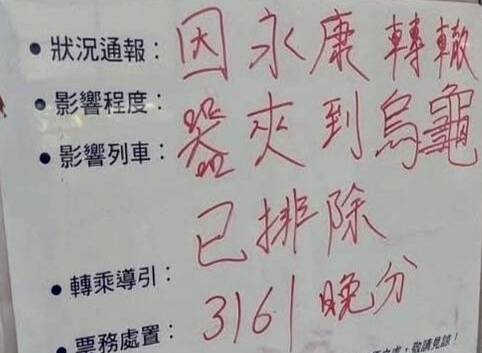 • 狀況通報： 因永康轉轍
• 影響程度： 器夾到烏龜
• 影響列車：
已排除
• 轉乘導引：
3161晚分
• 票務處置：
敬請見諒！